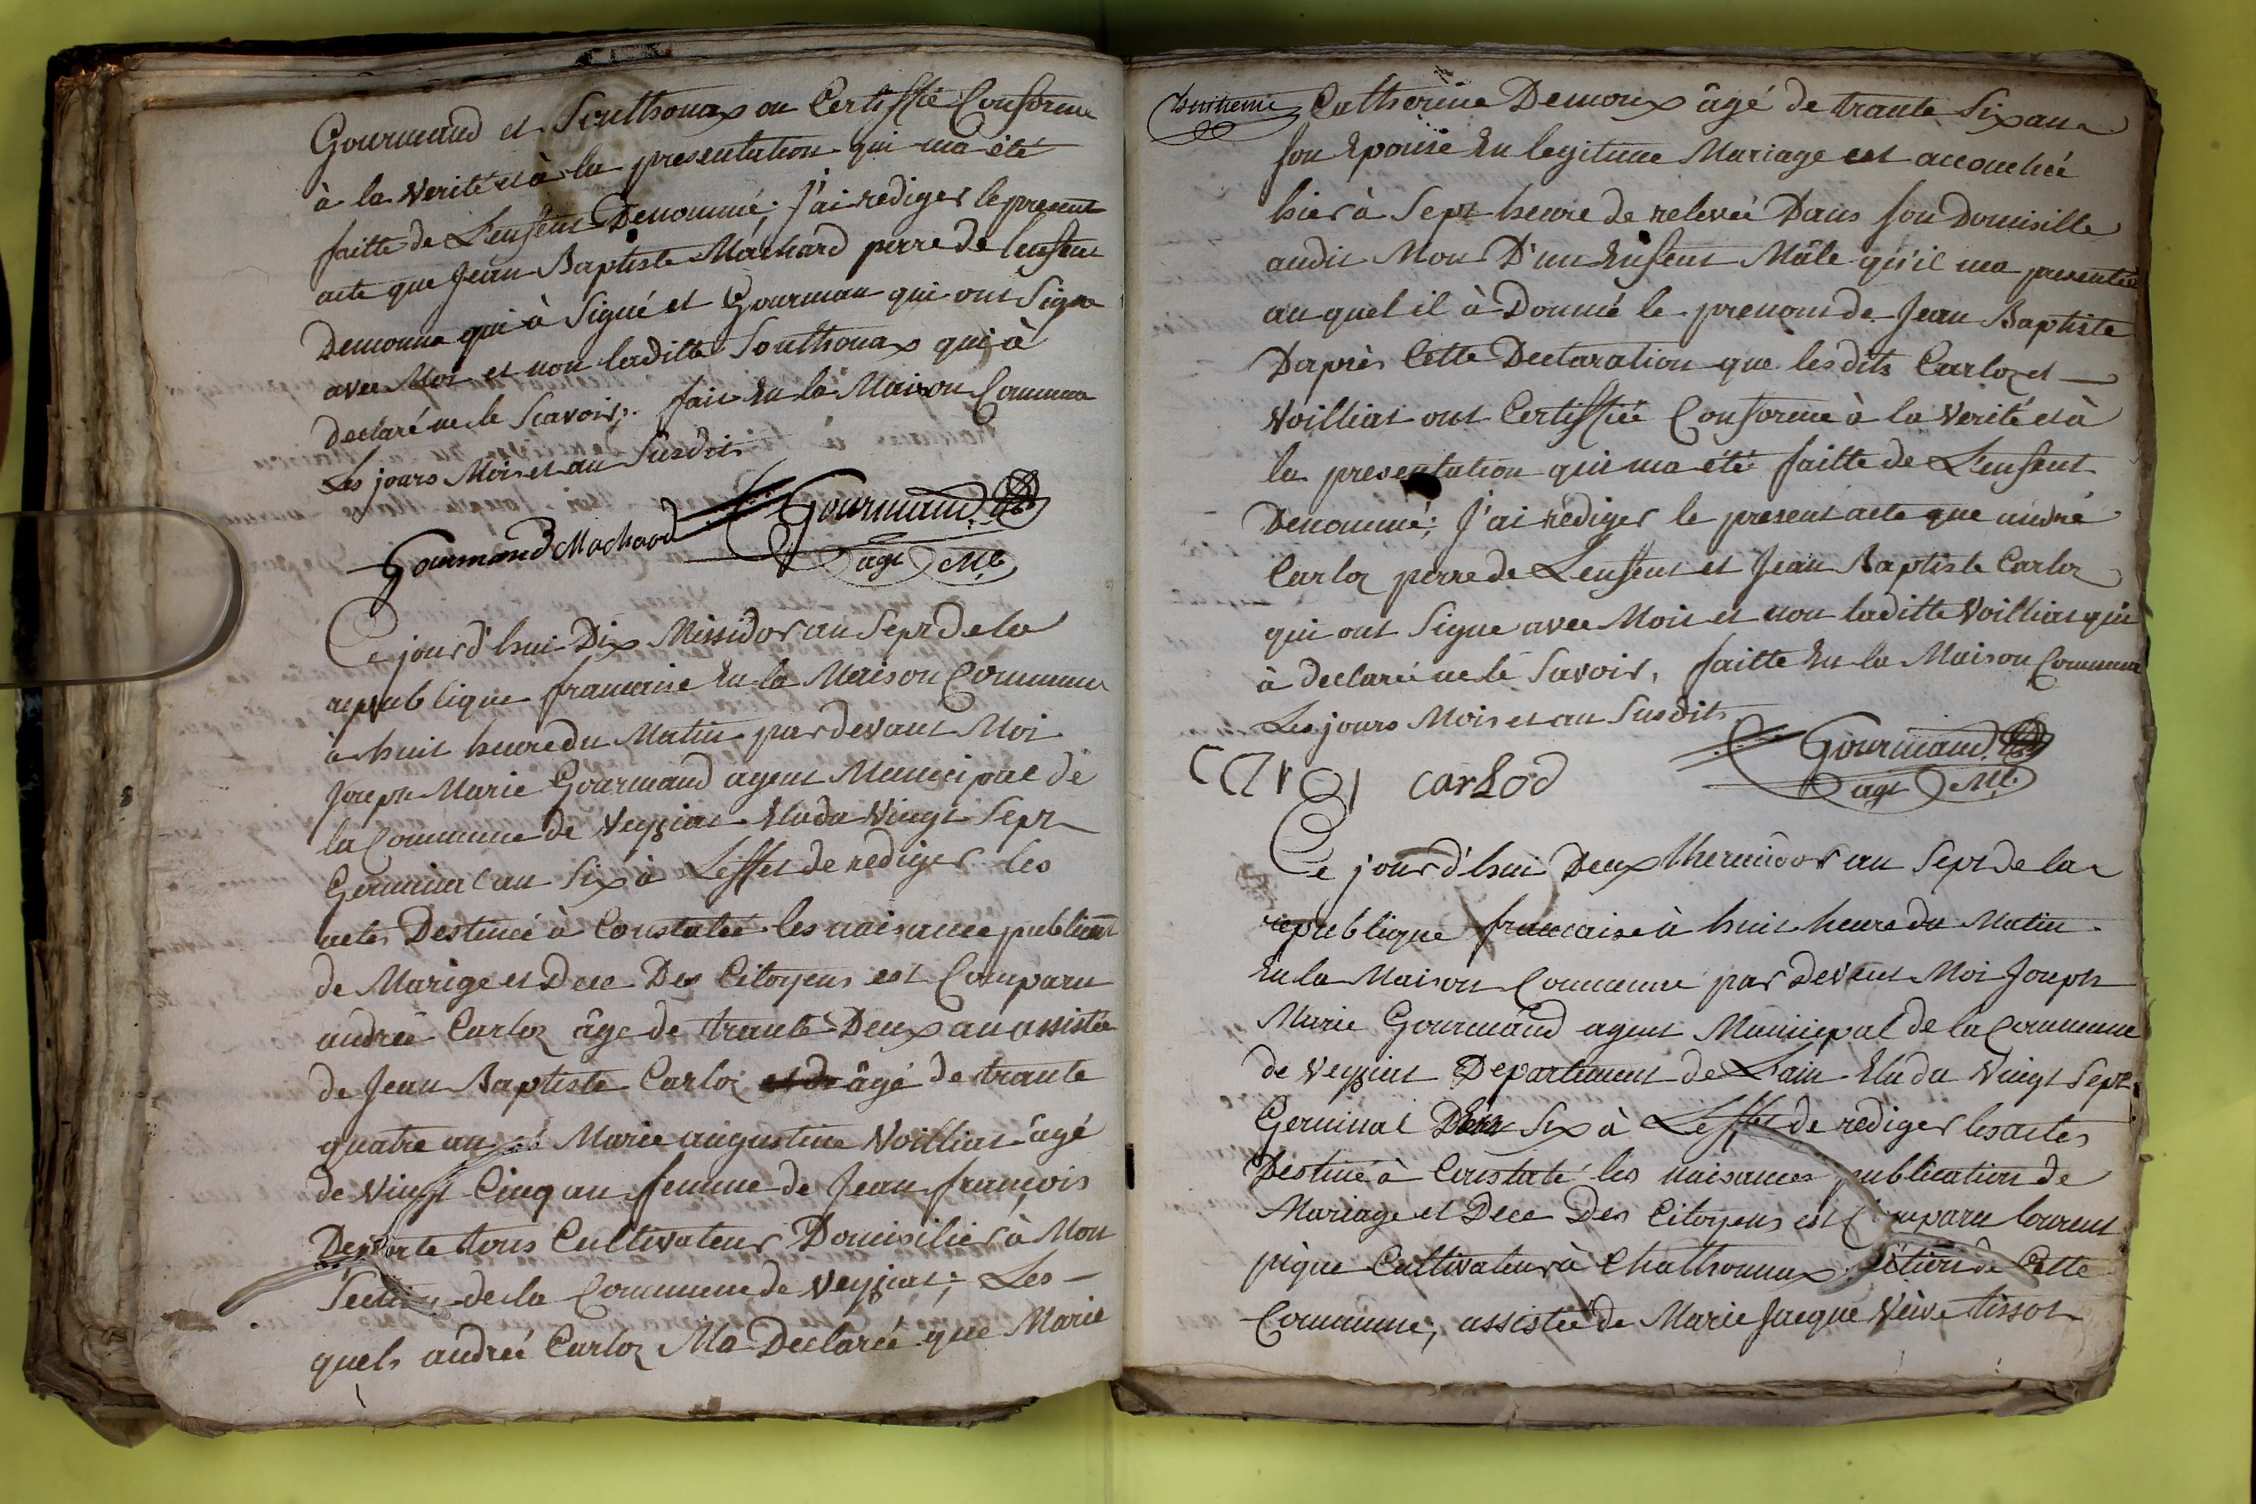 Gourmand et Southonax on Certiffié Conforme
à la Verité et à la presentation qui ma été
faitte de L'enfent Denommé; J'ai rediger le present
acte que Jean Baptiste Machard perre de lenfent
Denomme qui à Signé et Gourman qui ont Signe
avec Moi et non laditte Southonax qui à
declaré ne le Scavoir; fait En la Maison Commune
Les jours Mois et an Susdits
Gourmand Machard Gourmand
agt Ml
Ce jourd'hui Dix Missidor an Sept de la
republique francaise En la Maison Commune
à huit heure du Matin par devant Moi
Joseph Marie Gourmand agent Municipal de
la Commune de Veyziat Elu du Vingt Sept
Germinal an Six à Leffet de rediger les
actes Destiné à Constaté les naisance publication
de Marige et Dece Des Citoyens est Comparu
andreé Carloz âge de trante Deux an assistée
de Jean Baptiste Carloz et de âgé de trante
quatre an et Marie augustine Voilliat âgé
de Vingt Cinq an femme de Jean francois
Deporte tous Cultivateur Domisilier à Mon
Section de la Commune de Veyziat; Les
quels andreé Carloz Ma Declareé que Marie
huitieme Catherine Demoux âgé de trante Six an
Son Epouse En legitime Mariage est accouchée
hier à Sept heure de relevée Dans Son Domisille
audit Mon D'un Enfent Mâle qu'il ma presentée
au quel il à Donné le prenom de Jean Baptiste
D'après Cette Declaration que les dits Carloz et
Voilliat ont Certiffiée Conforme à la Verité et à
la presentation qui ma été faitte de L'enfent
Denommé; J'ai rédiger le present acte que andré
Carloz perre de Lenfent et Jean Baptiste Carloz
qui ont Signe avec Moi et non laditte Voilliat qui
à declaré ne le Savoir, faitte En la Maison Commune
Les jours Mois et an Susdits
carlod Gourmand
agt Ml.
Ce jourd'hui Deux thermidor an Sept de la
republique francaise à huit heure du Matin
En la Maison Commune par Devent Moi Joseph
Marie Gourmand agent Municipal de la Commune
de Veyziat Departement de Lain Elu du Vingt Sept
Germinal Six à Leffet de rediger les actes
Destiné à Constaté les naisances publication de
Mariage et Dece Des Citoyens est Comparu lourent
pigue Cultivateur à Chathonnax Section de Cette
Commune, assistée de Marie Jacque Veuve tissot